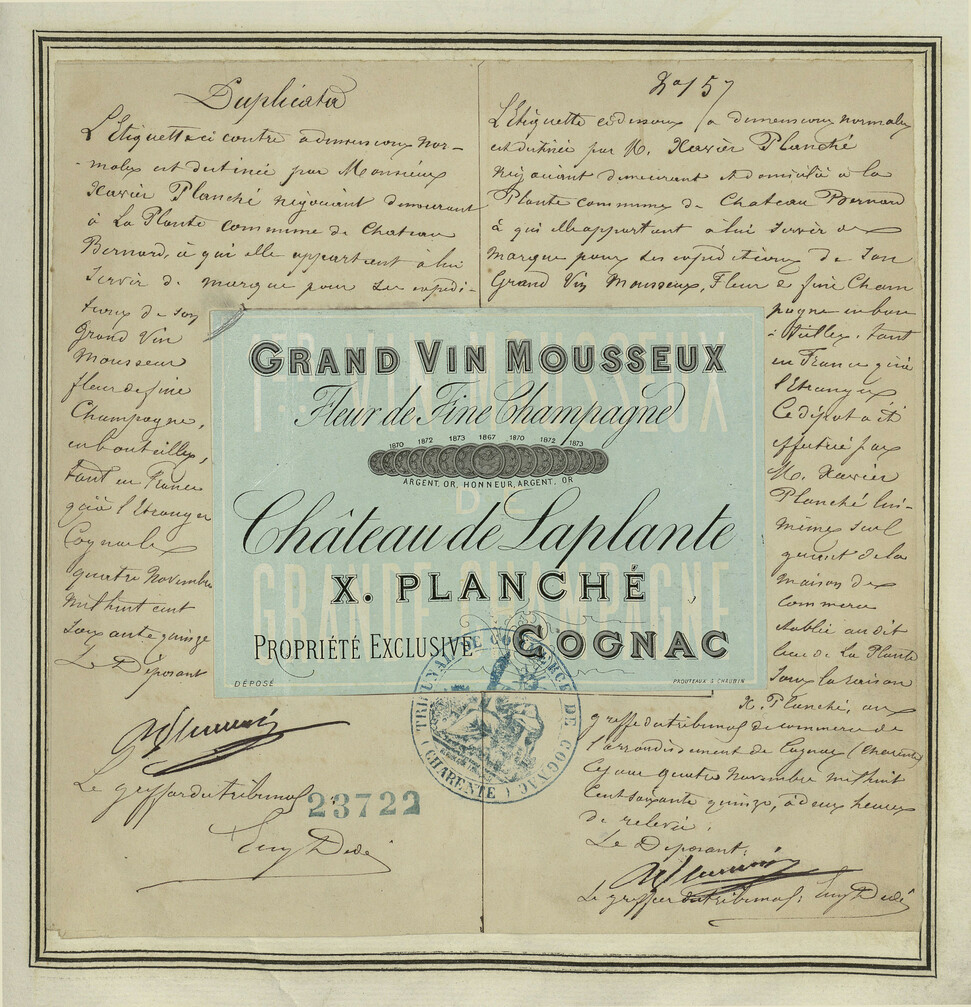 Duplicata
L'Etiquette ci contre a dimensions nor-
males est destinée par Monsieur
Xavier Planché négociant demeurant
à La Plante commune de Chateau
Bernard, à qui elle appartient à lui
servir de marque pour ses expédi-
tions de son
Grand Vin
Mousseux
fleur de fine
Champagne,
en bouteilles,
tant en France
qu'à l'Etranger
Cognac le
quatre Novembre
mil huit cent
soixante quinze
Le Déposant
Le greffier du tribunal
23722
Eug Dedé
No 157
L'Etiquette ci dessous a dimensions normales
est destinée par M. Xavier Planché
Négociant demeurant et domicilié à la
Plante commune de Chateau Bernard
à qui elle appartient à lui servir de
marque pour ses expéditions de son
Grand Vin Mousseux, Fleur de fine Cham
pagne en bou
teilles, tant
en France qu'à
l'Etranger
Ce dépot a été
effectué par
M. Xavier
Planché lui-
même seul
gérant de la
maison de
commerce
établie au dit
lieu de La Plante
sous la raison
X. Planché, au
greffe du tribunal de commerce de
l'arrondissement de Cognac (Charente)
Ce jour quatre Novembre mil huit
Cent soixante quinze, à deux heures
de relevée.
Le Déposant:
Le greffier du tribunal: Eug Dedé
1ER VIN MOUSSEUX
DE
GRANDE CHAMPAGNE
GRAND VIN MOUSSEUX
Fleur de Fine Champagne
1870 1872 1873 1867 1870 1872 1873
ARGENT. OR, HONNEUR, ARGENT. OR
Château de Laplante
X. PLANCHÉ
PROPRIÉTÉ EXCLUSIVE COGNAC
DÉPOSÉ PROUTEAUX & CHAUBIN
TRIBUNAL DE COMMERCE DE COGNAC
(CHARENTE)